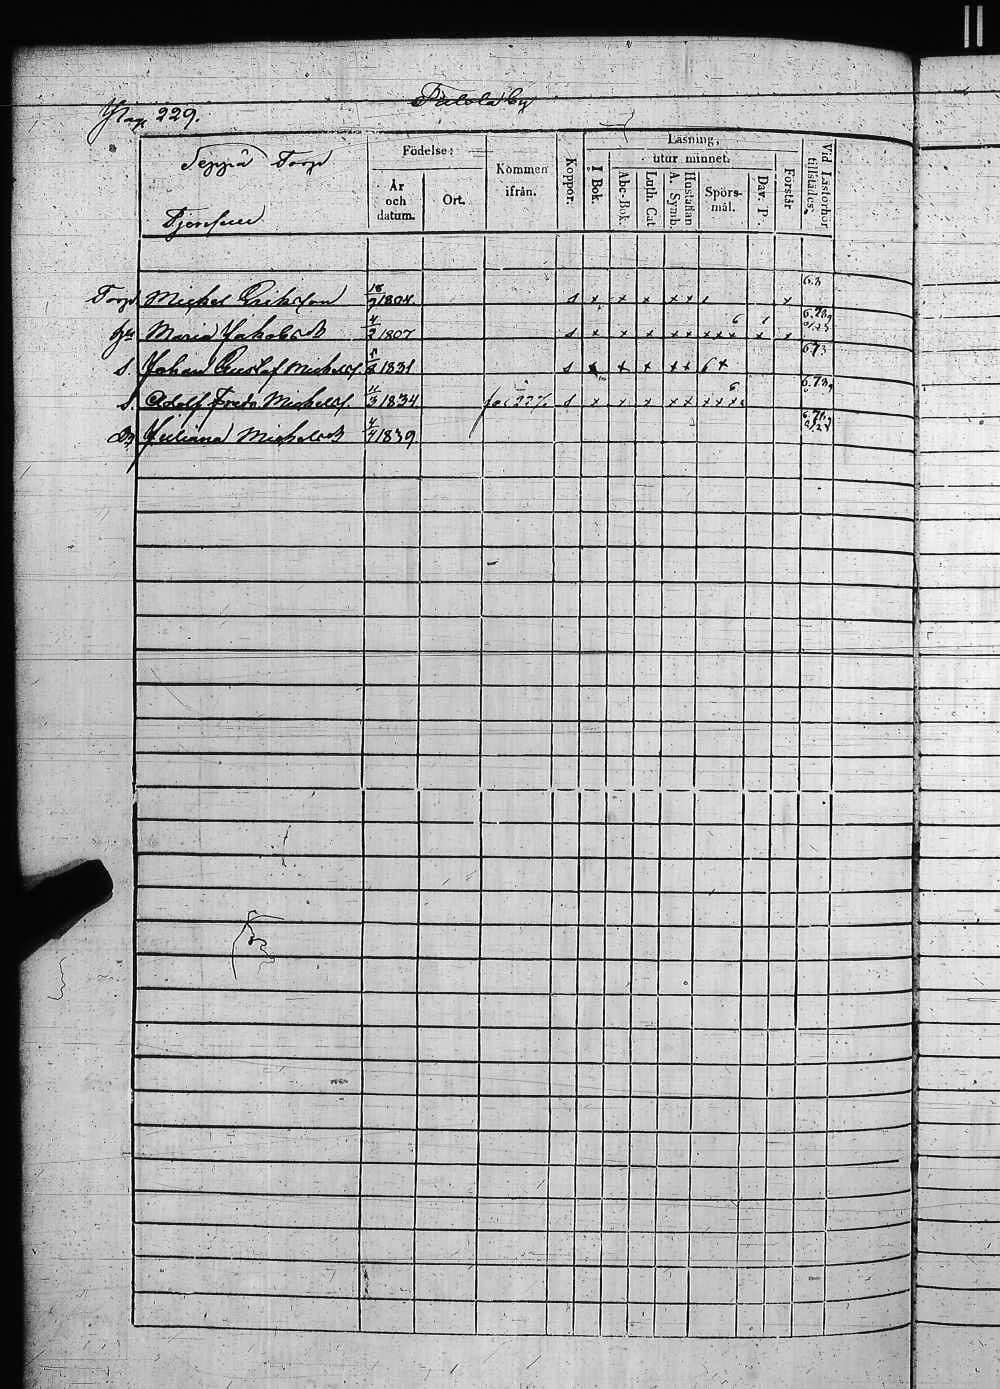 Pag 229.
by
Seppä Torp
Födelse:
År och datum.
Ort.
Kommen ifrån.
Koppor.
Läsning,
I Bok.
utur minnet.
Abc-Bok.
Luth. Cat
Hustaflan A. Symb.
Spörs-mål.
Dav. P.
Förstår
Vid Läsförhör tillstädes.
Torp Michel Eriksson 18/9 1804 s x x x x x x
hu Maria Jakobsd 4/2 1807 s x x x x x x x x 6 x x
s. Johan Gustaf Michelss. 1831 s x x x x x 6 x 673
s. Adolf Fredr. Michelss. 11/3 1834 s x x x x x x x x 6
Juliana Michelsd 1839